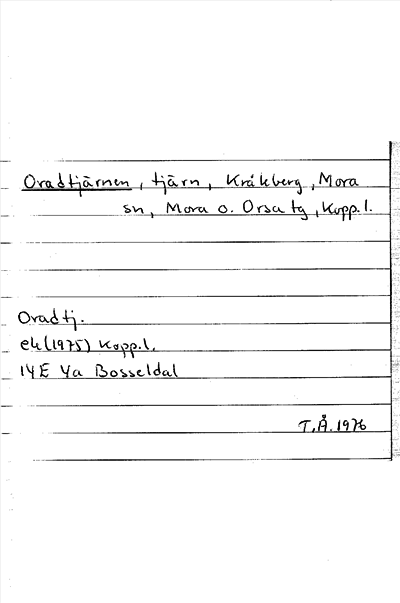 Oradtjärnen, tjärn, Kråkberg, Mora
sn, Mora o. Orsa tg, Kopp. l.
Oradtj.
ek (1975) Kopp. l.
14E 4a Bosseldal
T.Å. 1976